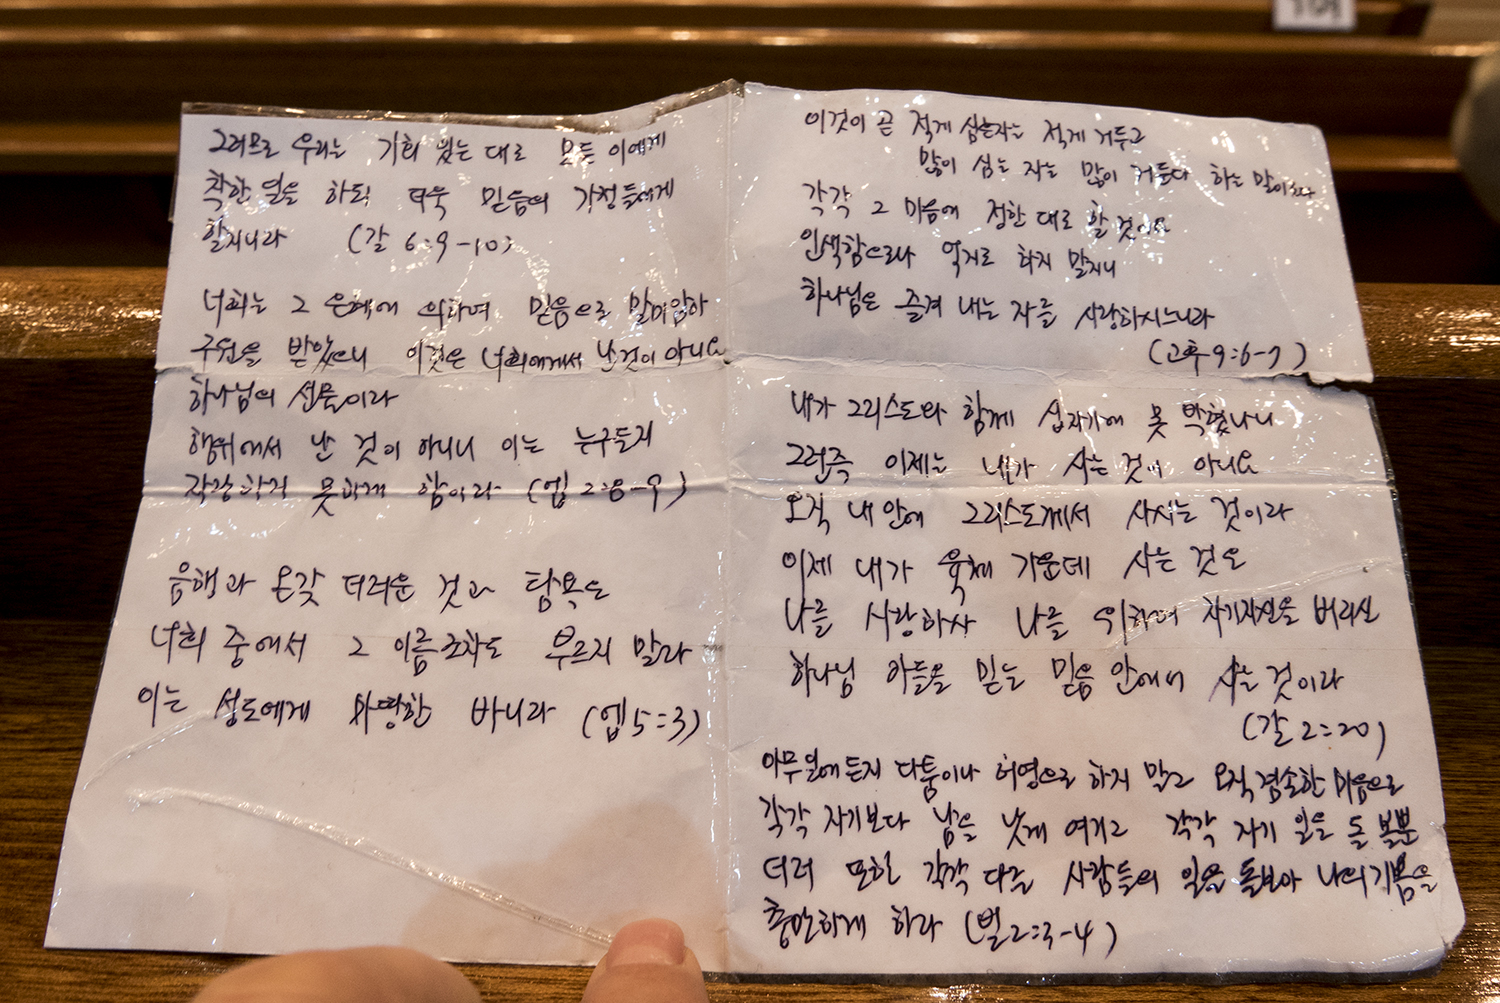 그러므로 우리는 기회 있는 대로 모든 이에게
착한 일을 하되 더욱 믿음의 가정들에게
할지니라 (갈 6:9-10)
너희는 그 은혜에 의하여 믿음으로 말미암아
구원을 받았으니 이것은 너희에게서 난 것이 아니요
하나님의 선물이라
행위에서 난 것이 아니니 이는 누구든지
자랑하지 못하게 함이라 (엡 2:8-9)
음행과 온갖 더러운 것과 탐욕은
너희 중에서 그 이름조차도 부르지 말라
이는 성도에게 마땅한 바니라 (엡5:3)
이것이 곧 적게 심는자는 적게 거두고
많이 심는 자는 많이 거둔다 하는 말이로다
각각 그 마음에 정한 대로 할 것이요
인색함으로나 억지로 하지 말지니
하나님은 즐겨 내는 자를 사랑하시느니라
(고후9:6-7)
내가 그리스도와 함께 십자가에 못 박혔나니
그런즉 이제는 내가 사는 것이 아니요
오직 내 안에 그리스도께서 사시는 것이라
이제 내가 육체 가운데 사는 것은
나를 사랑하사 나를 위하여 자기자신을 버리신
하나님 아들을 믿는 믿음 안에서 사는 것이라
(갈 2:20)
아무 일에든지 다툼이나 허영으로 하지 말고 오직 겸손한 마음으로
각각 자기보다 남을 낫게 여기고 각각 자기 일을 돌볼뿐
더러 또한 각각 다른 사람들의 일을 돌보아 나의 기쁨을
충만하게 하라 (빌2:3-4)